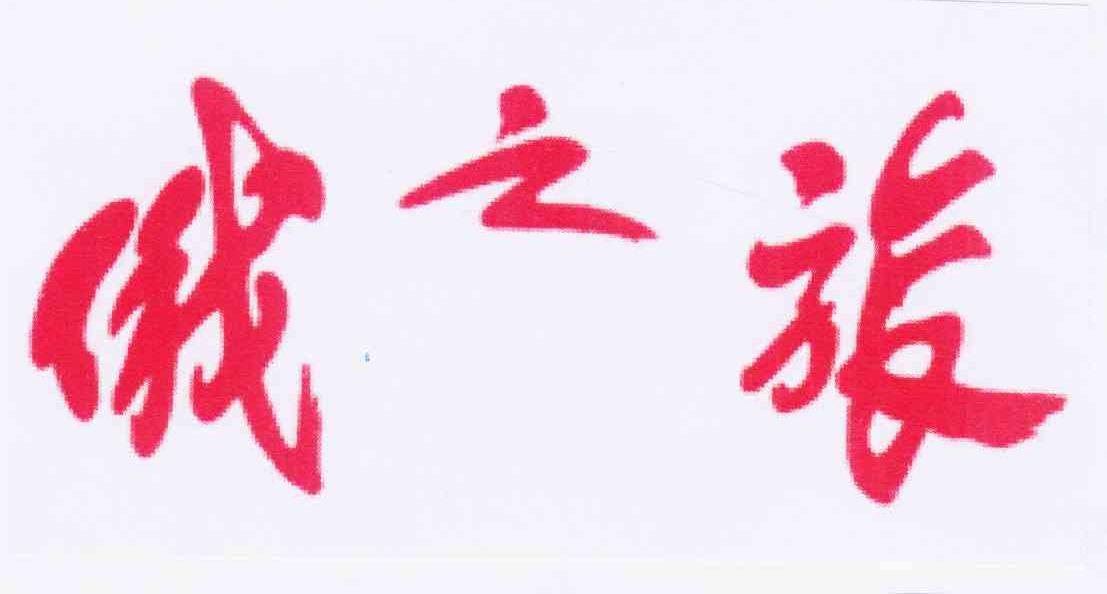 俄之旅